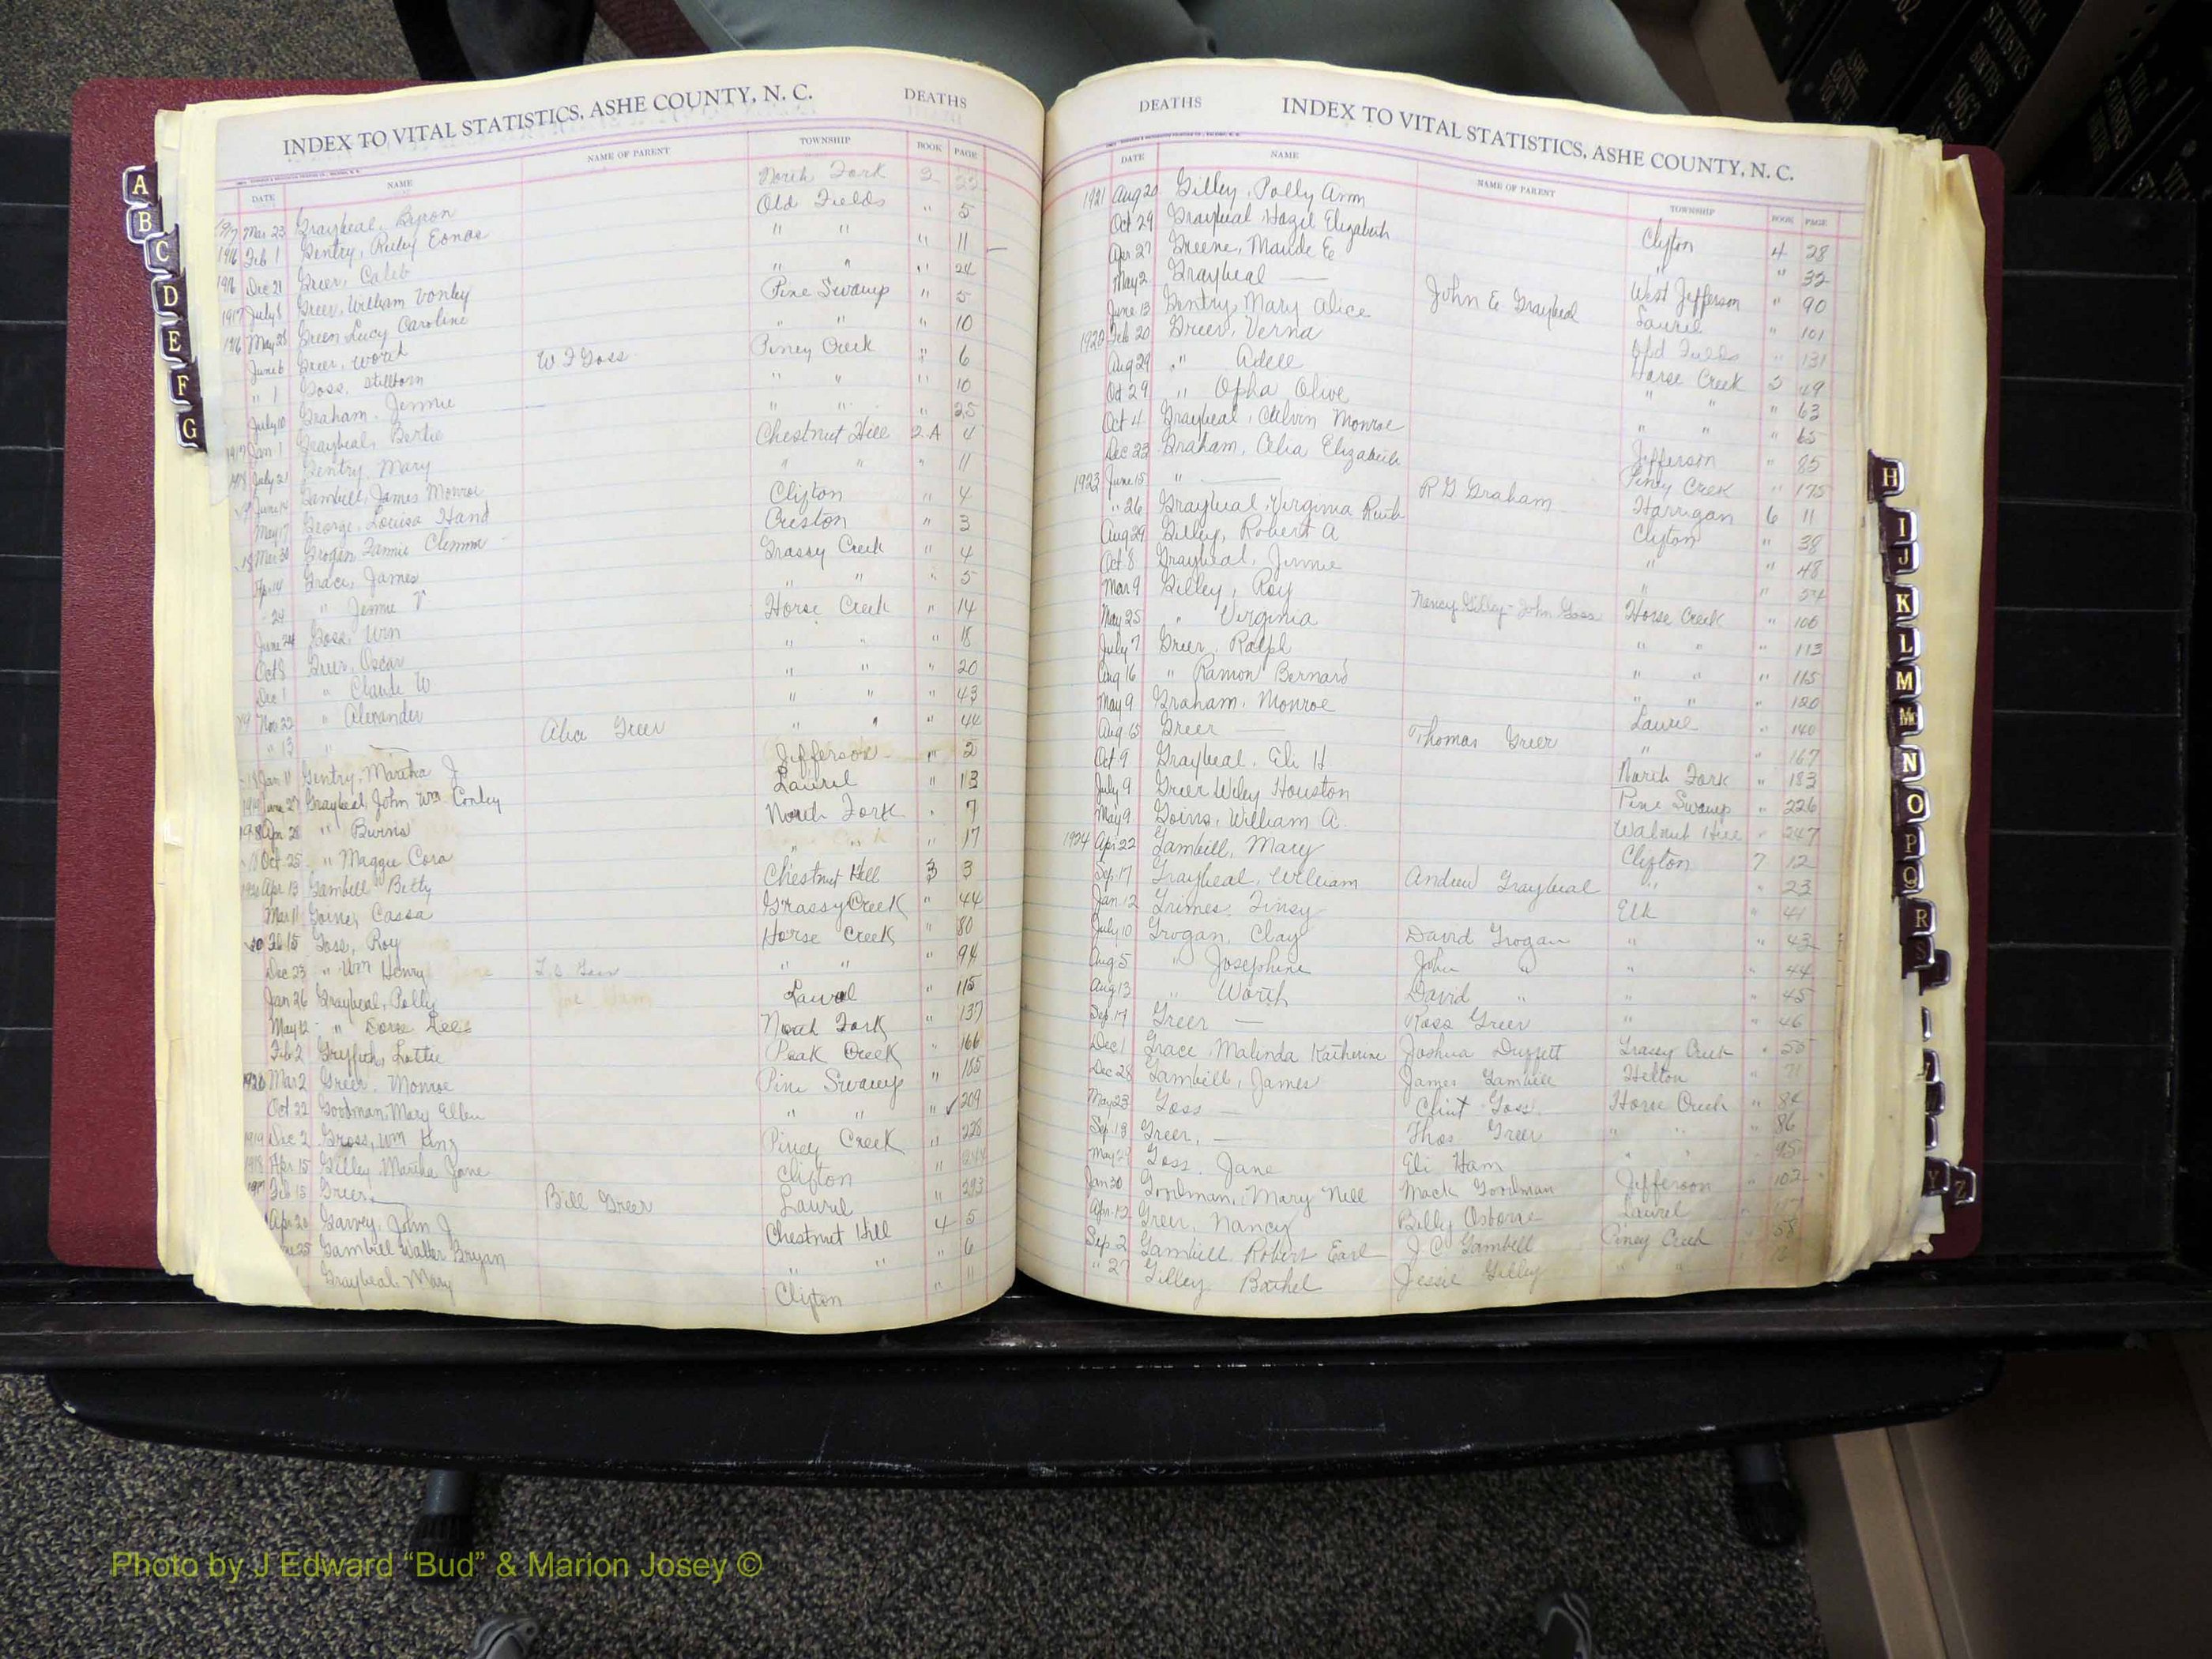 INDEX TO VITAL STATISTICS, ASHE COUNTY, N. C. DEATHS
DATE NAME NAME OF PARENT TOWNSHIP BOOK PAGE
1917 Mar 23 Graybeal, Byron North Fork 2 23
1916 Feb 1 Gentry, Ruley Eonas Old Fields " 5
1916 Dec 21 Greer, Caleb " " " 11
1917 July 8 Greer, William Vonley " " " 24
1916 May 28 Green Lucy Caroline Pine Swamp " 5
June 6 Greer, Worth " " " 10
" 1 Goss, Stillborn W F Goss Piney Creek " 6
July 10 Graham, Jennie " " " 10
1917 Jan 1 Graybeal, Bertie " " " 25
July 21 Gentry, Mary Chestnut Hill 2-A 4
June 14 Gambill, James Monroe " " " 11
May 17 George, Louisa Hand Clifton " 4
Mar 30 Grogan Fannie Clemmie Creston " 3
Apr 14 Grace, James Grassy Creek " 4
24 " Jennie V " " " 5
June 24 Goss, Wm Horse Creek " 14
Oct 8 Greer, Oscar " " " 18
Dec 1 " Claude W " " " 20
Nov 22 " Alexander " " " 43
" 13 " — Alice Greer " " " 44
Jan 11 Gentry, Martha J Jefferson " 2
1919 June 27 Graybeal, John Wm Conley Laurel " 13
1918 Apr 28 " Burnis North Fork " 7
Oct 25 " Maggie Cora " " " 17
1920 Apr 13 Gambill Betty Chestnut Hill 3 3
Mar 11 Goines Cassa Grassy Creek " 44
Feb 15 Goss, Roy Horse Creek " 80
Dec 23 " Wm Henry " " " 94
Jan 26 Graybeal, Polly Laurel " 115
May 12 " Dorse Lee North Fork " 137
Feb 2 Griffith, Lottie Peak Creek " 166
1920 Mar 2 Greer, Monroe Pine Swamp " 185
Oct 22 Goodman, Mary Ellen " " " ✓ 209
1919 Dec 2 Gross, Wm King Piney Creek " 228
1918 Apr 15 Gilley, Martha Jane Clifton " 244
Feb 15 Greer — Bill Greer Laurel " 293
Apr 20 Garvey, John J Chestnut Hill 4 5
25 Gambill Walter Bryan " " " 6
Graybeal, Mary Clifton " 11
DEATHS INDEX TO VITAL STATISTICS, ASHE COUNTY, N. C.
DATE NAME NAME OF PARENT TOWNSHIP BOOK PAGE
1921 Aug 20 Gilley, Polly Ann Clifton 4 28
Oct 29 Graybeal Hazel Elizabeth " " 32
Apr 27 Greene, Maude E West Jefferson " 90
May 2 Graybeal — John E Graybeal Laurel " 101
June 13 Gentry, Mary Alice Old Fields " 131
1922 Feb 20 Greer, Verna Horse Creek 5 49
Aug 29 " Adele " " " 63
Oct 29 " Opha Olive " " " 65
Oct 4 Graybeal, Calvin Monroe Jefferson " 85
Dec 23 Graham, Celia Elizabeth Piney Creek " 175
1923 June 15 " — R G Graham Horrigan 6 11
" 26 Graybeal, Virginia Ruth Clifton " 38
Aug 29 Gilley, Robert A " " 48
Oct 8 Graybeal, Jimmie " " 54
Mar 9 Gilley, Roy Nancy Gilley - John Goss Horse Creek " 106
May 25 " Virginia " " " 113
July 7 Greer, Ralph " " " 115
Aug 16 " Ramon Bernard " " " 120
May 9 Graham, Monroe Laurel " 140
Aug 15 Greer — Thomas Greer " " 167
Oct 9 Graybeal, Eli H North Fork " 183
July 9 Greer Wiley Houston Pine Swamp " 226
May 9 Goins, William A. Walnut Hill " 247
1924 Apr 22 Gambill, Mary Clifton 7 12
Sep 17 Graybeal, William Andrew Graybeal " " 23
Jan 12 Grimes, Finsy Elk " 41
July 10 Grogan, Clay David Grogan " " 43
Aug 5 " Josephine John " " " 44
Aug 13 " Worth David " " " 45
Sep 17 Greer — Ross Greer " " 46
Dec 1 Grace, Malinda Katherine Joshua Grassy Creek " 50
Dec 28 Gambill, James James Gambill Helton " 71
May 23 Goss — Clint Goss Horse Creek " 84
Sep 18 Greer, — Thos Greer " " 86
May 29 Goss, Jane Eli Ham " " " 95
Jan 30 Goodman, Mary Nell Mack Goodman Jefferson " 102
Apr 12 Greer, Nancy Billy Osborne Laurel
Sep 2 Gambill, Robert Earl J. C. Gambill Piney Creek
" 27 Gilley Bathel Jessie Gilley " "
A
B
C
D
E
F
G
H
I
J
K
L
M
Mc
N
O
P
Q
R
S
Y
Z
VITAL STATISTICS BIRTHS 1963
Photo by J Edward “Bud” & Marion Josey ©